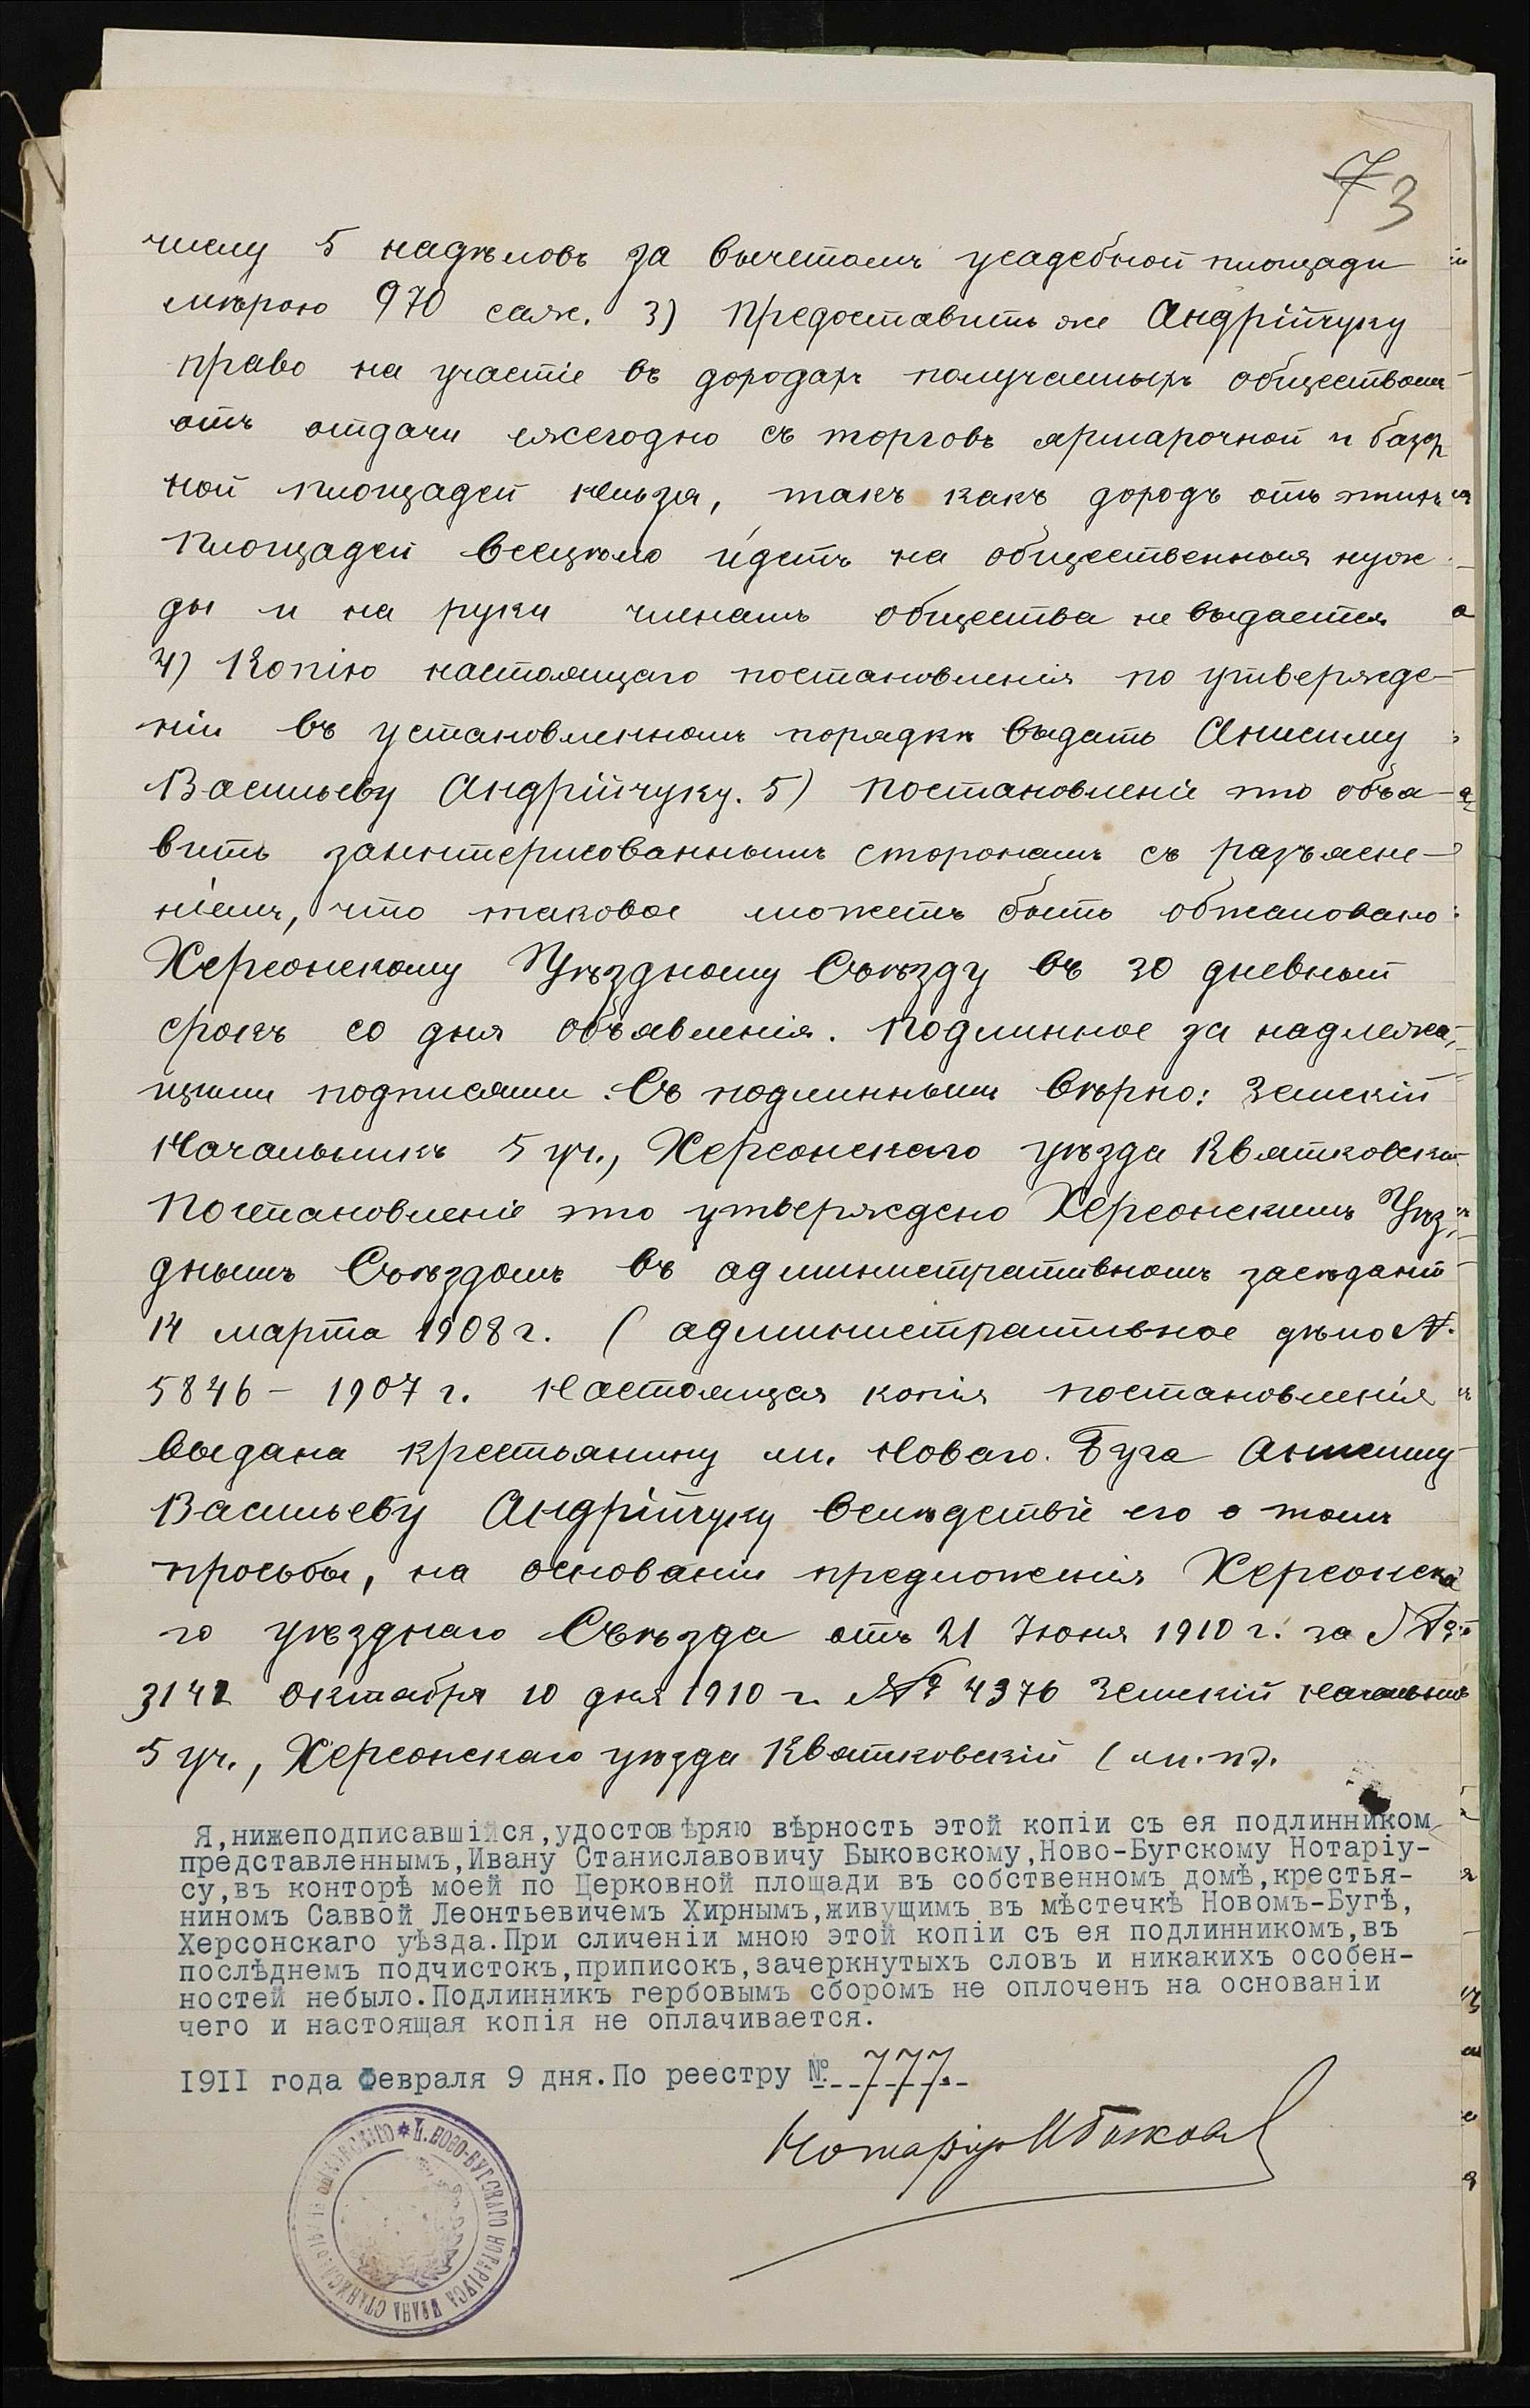 73
числу 5 надѣловъ за вычетомъ усадебной площади
мѣрою 970 саж. 3) Предоставить же Андрійчуку
право на участіе въ доходахъ получаемыхъ обществомъ
отъ отдачи ежегодно съ торговъ ярмарочной и базар
ной площадей нельзя, такъ какъ доходъ отъ этихъ
площадей всецѣло идетъ на общественныя нуж
ды и на руки членамъ общества не выдается
4) Копію настоящаго постановленія по утвержде-
ніи въ установленномъ порядкѣ выдать Анисиму
Васильеву Андрійчуку. 5) Постановленіе это объя-
вить заинтерисованнымъ сторонамъ съ разъясне-
ніемъ, что таковое можетъ быть обжаловано
Херсонскому Уѣздному Съѣзду въ 30 дневный
срокъ со дня объявленія. Подлинное за надлежа-
щими подписями. Съ подлиннымъ вѣрно: Земскій
Начальникъ 5 уч., Херсонскаго уѣзда Квятковскій
Постановленіе это утверждено Херсонскимъ Уѣз-
днымъ Съѣздомъ въ административномъ засѣданіи
14 марта 1908 г. (административное дѣло №.
5846 - 1907 г. Настоящая копія постановленія
выдана крестьянину м. Новаго Буга Анисиму
Васильеву Андрійчуку вслѣдствіе его о томъ
просьбы, на основаніи предложенія Херсонска
го уѣзднаго Съѣзда отъ 21 Іюня 1910 г. за №
3142 Октября 10 дня 1910 г. № 4376 Земскій Начальникъ
5 уч., Херсонскаго уѣзда Квятковскій (м.п.).
Я,нижеподписавшійся,удостовѣряю вѣрность этой копіи съ ея подлинником
представленнымъ,Ивану Станиславовичу Быковскому,Ново-Бугскому Нотаріу-
су,въ конторѣ моей по Церковной площади въ собственномъ домѣ,крестья-
ниномъ Саввой Леонтьевичемъ Хирнымъ,живущимъ въ мѣстечкѣ Новомъ-Бугѣ,
Херсонскаго уѣзда.При сличеніи мною этой копіи съ ея подлинникомъ,въ
послѣднемъ подчистокъ,приписокъ,зачеркнутыхъ словъ и никакихъ особен-
ностей небыло.Подлинникъ гербовымъ сборомъ не оплоченъ на основаніи
чего и настоящая копія не оплачивается.
1911 года Февраля 9 дня.По реестру № 777.
Нотаріус
НОВО-БУГСКАГО НОТАРІУСА ИВАНА